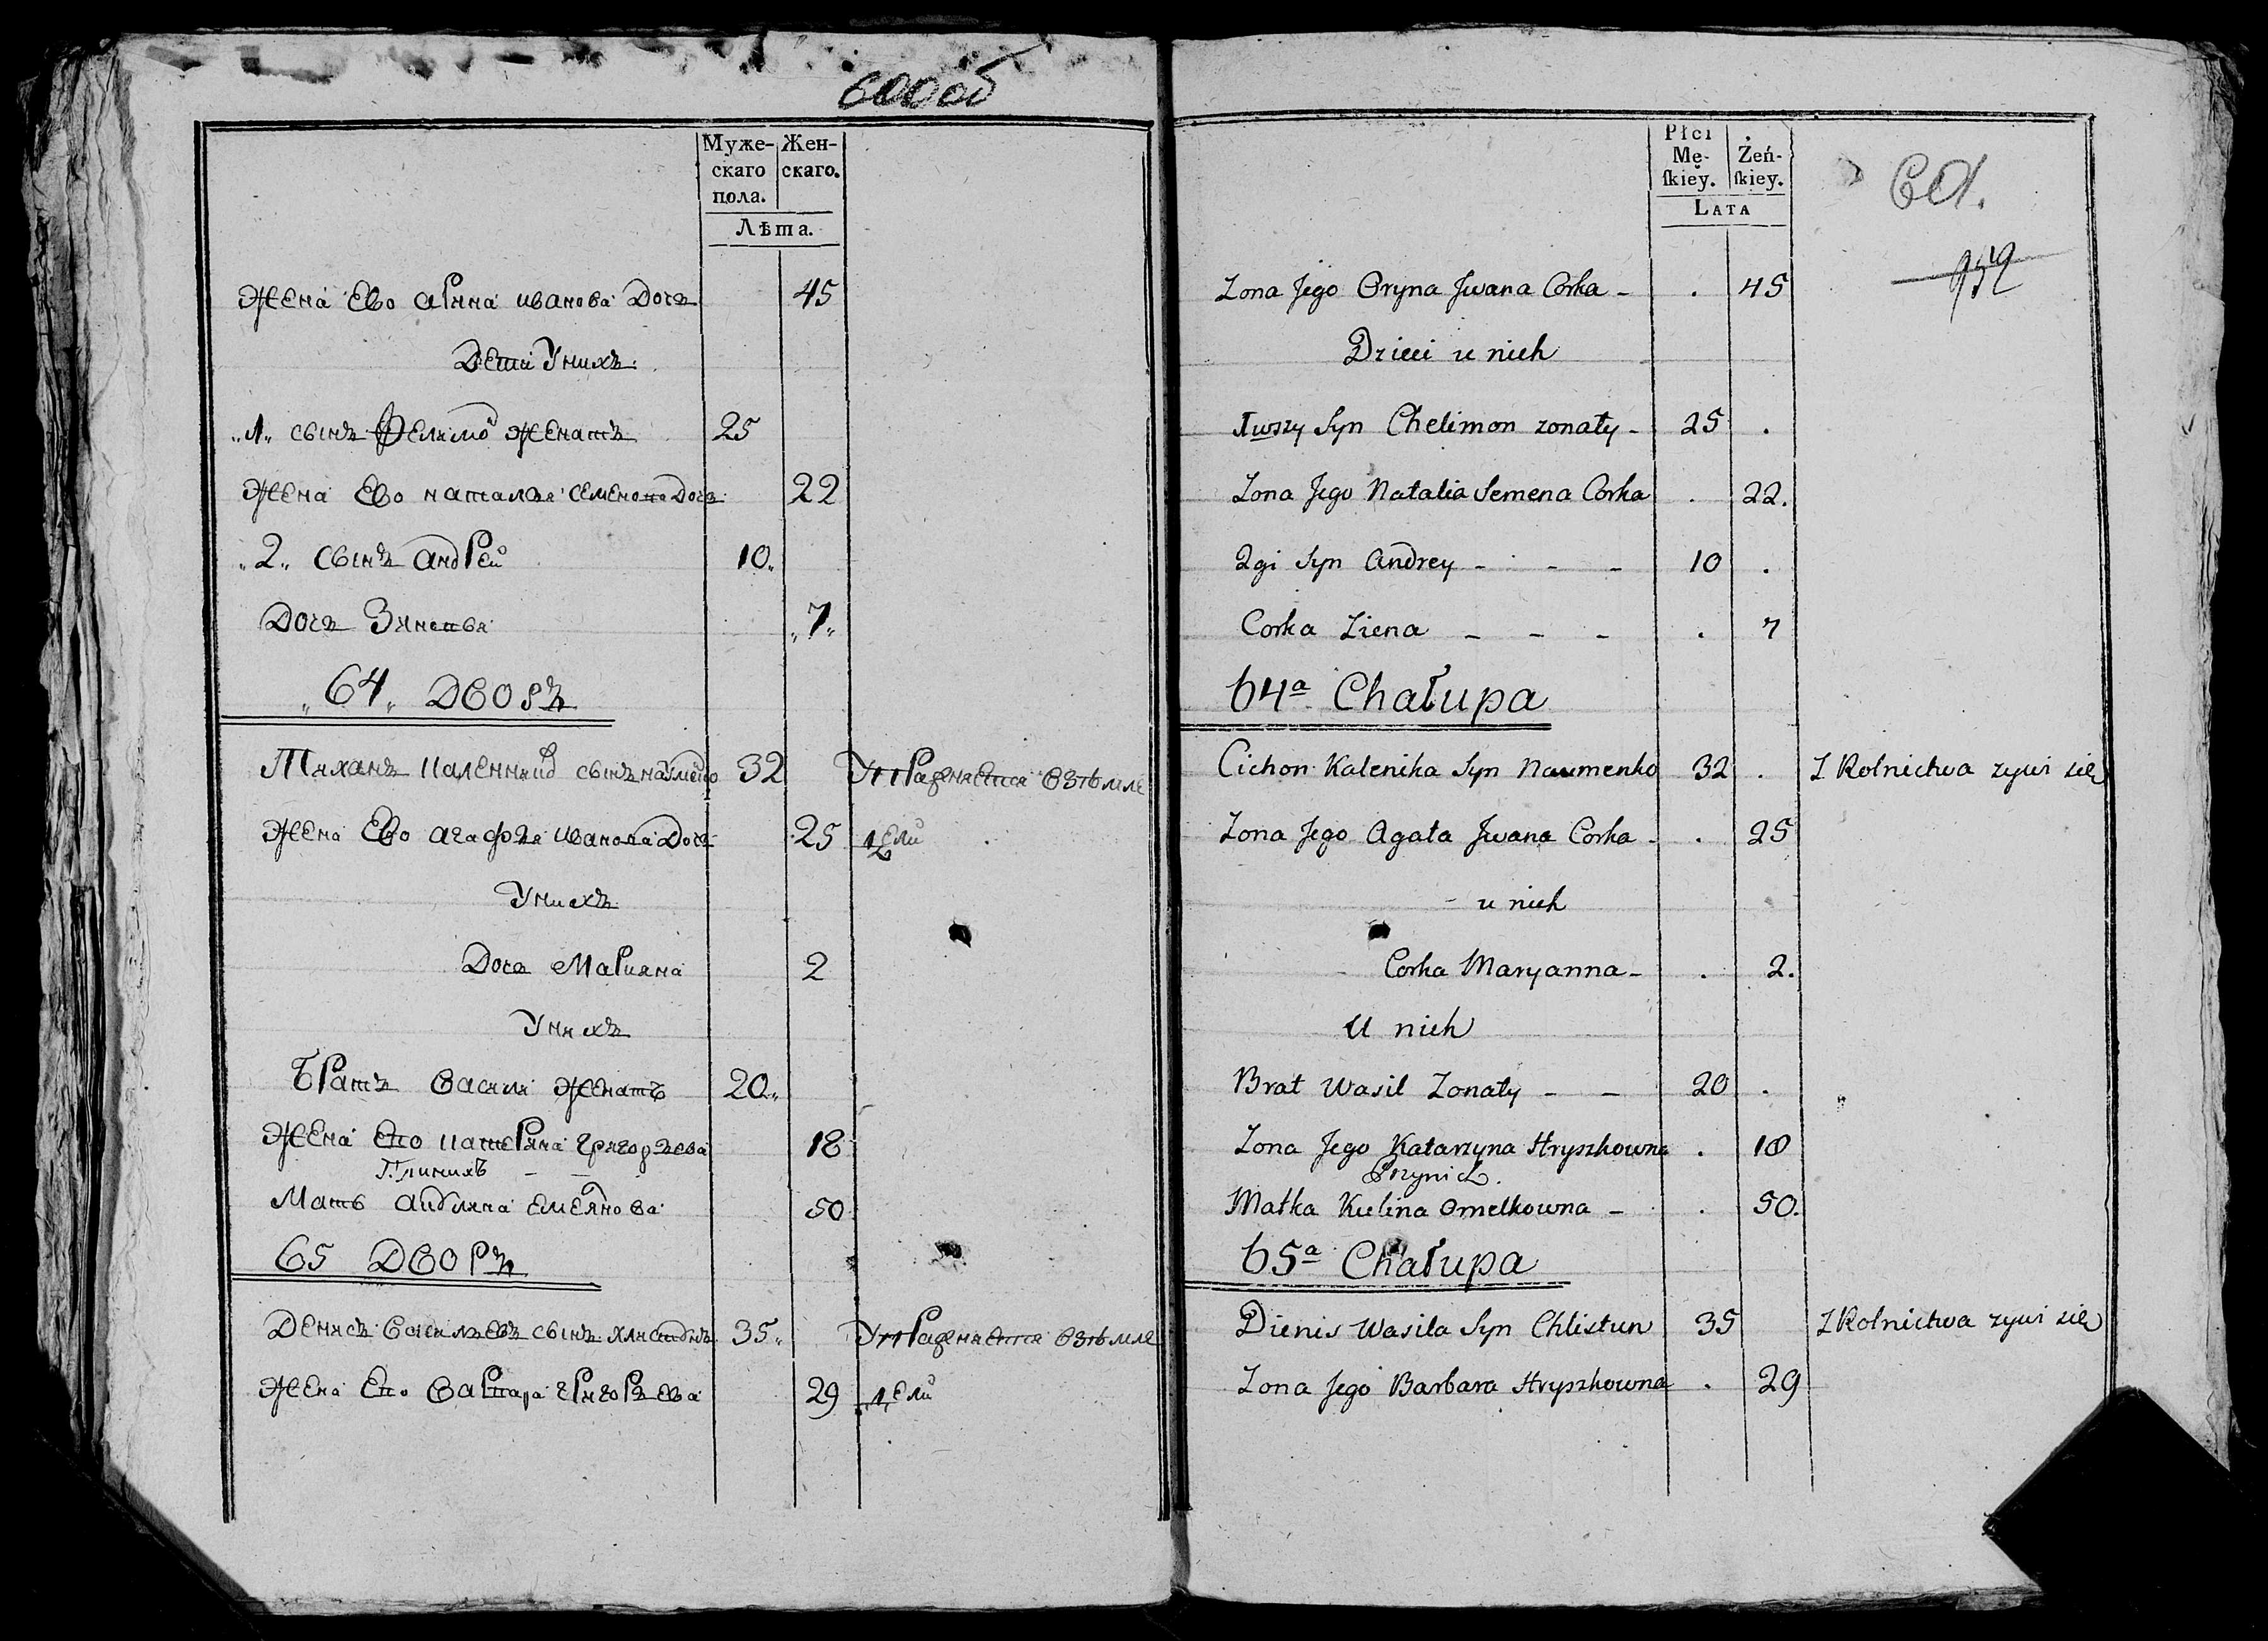 600 об
Муже-
скаго
пола.
Жен-
скаго.
Лѣта.
Жена Ево арина иванова Дочь 45
Дети Унихъ
„1„ сынъ Филимо женатъ 25
Жена Ево наталья семенова Дочь 22
„2„ сынъ андрей 10„
Дочь Зиновья „7„
„64„ Дворъ
Тихонъ каленикo сынъ науменко 32 Упражняется вземле
Жена Ево агафья иванова Дочь 25 делии
Унихъ
Дочь Марияна 2
Унихъ
Братъ васили женатъ 20„
Жена Ево катерина григорьева 18
Приних
Мать акулина емелянова 50
65 Дворъ
Денисъ васильевъ сынъ хлистунъ 35„ Упражняется вземле
Жена Ево варвара григорьева 29 делии
Płci
Mę-
ſkiey.
Żeń-
ſkiey.
LATA
601.
952
Zona Jego Oryna Jwana Corka - . 45
Dzieci u nich
1wszy Syn Chelimon zonaty - 25 .
Zona Jego Natalia Semena Corka . 22.
2gi Syn Andrey - - - 10 .
Corka Ziena - - - . 7
64a Chałupa
Cichon Kalenika Syn Naumenko 32 . Z Rolnictwa zywi się
Zona Jego Agata Jwana Corka - . 25
- u nich
Corka Maryanna - . 2.
U nich
Brat Wasil Zonaty - - 20 .
Zona Jego Katarzyna Hryszkowna . 18
Przynich.
Matka Kulina Omelkowna - . 50.
65a Chałupa
Dienis Wasila Syn Chlistun 35 Z Rolnictwa zywi się
Zona Jego Barbara Hryszkowna . 29